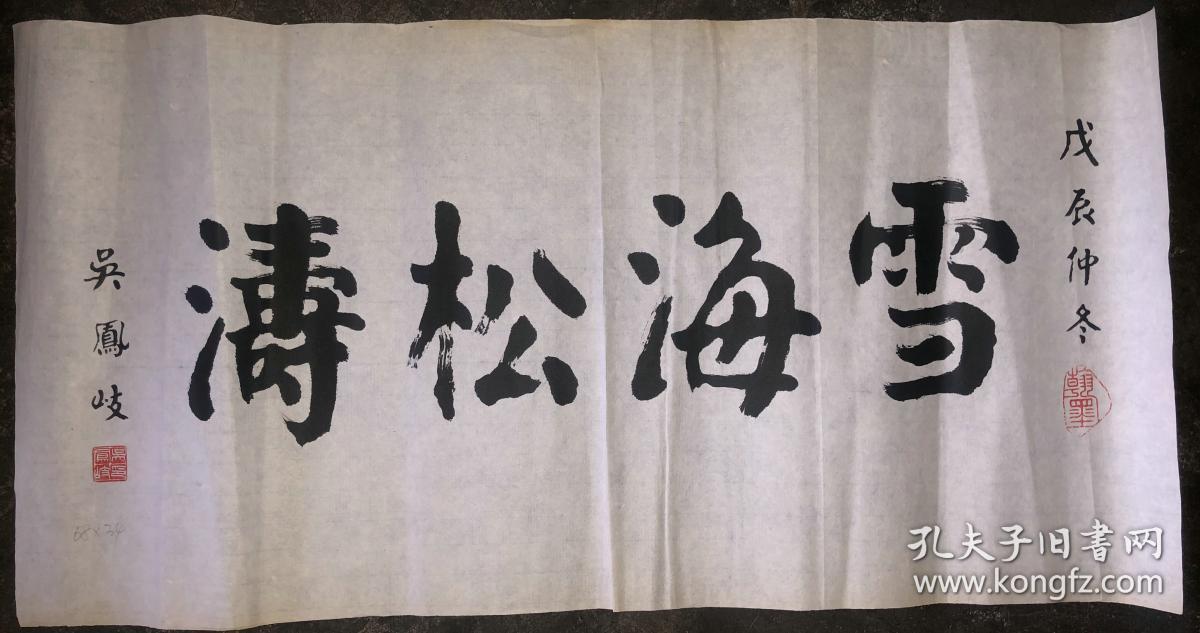 戊辰仲冬
翰墨
雪海松濤
吳鳳岐
68×34
孔夫子旧書网
www.kongfz.com